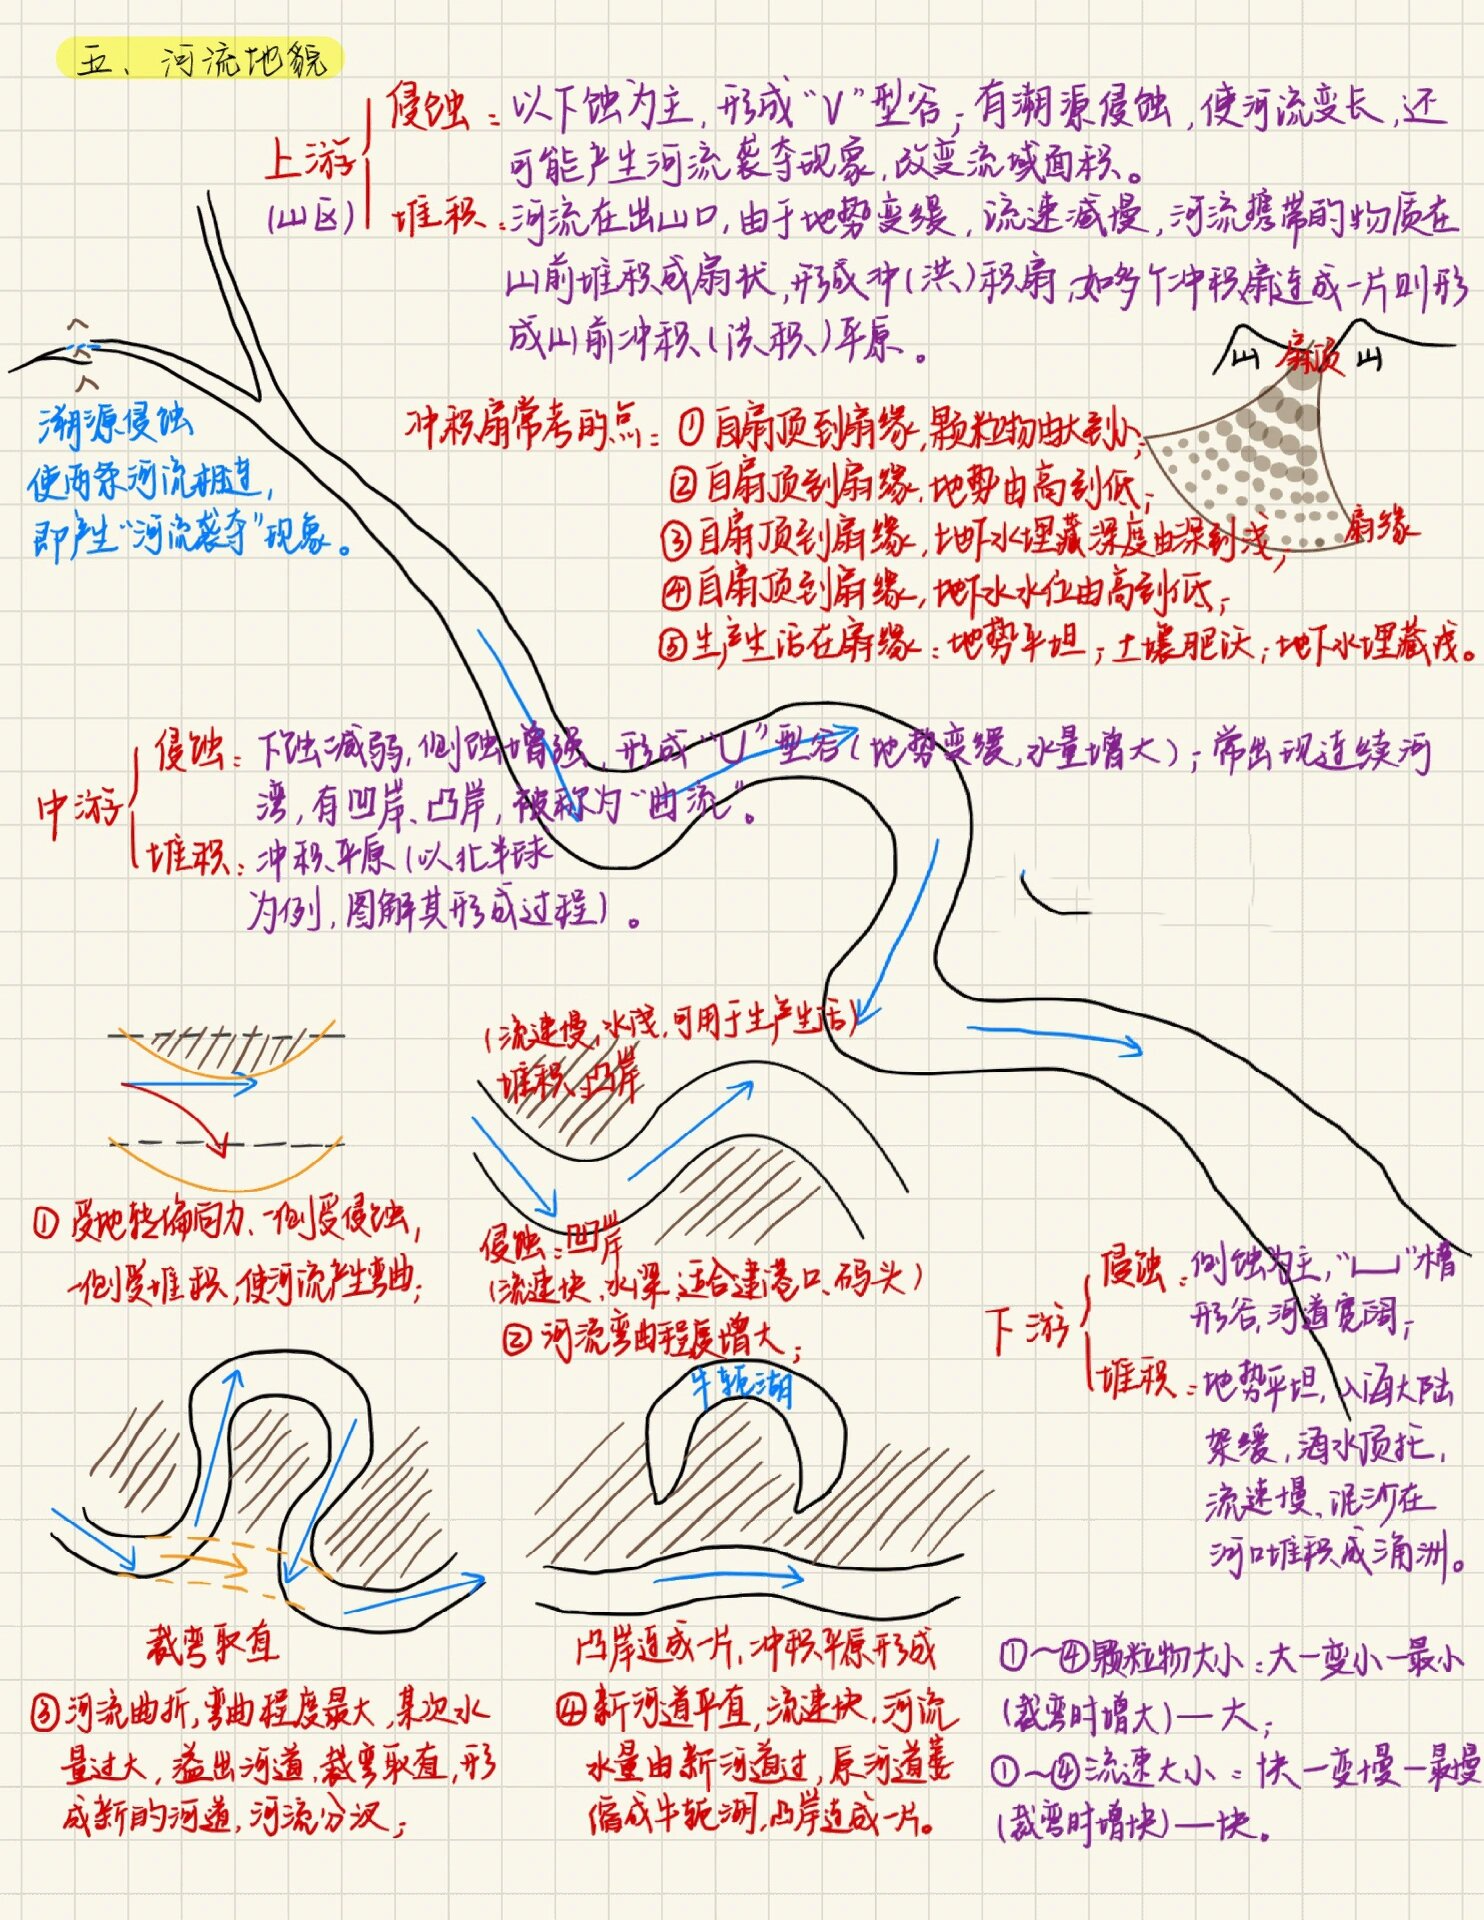 五、河流地貌
上游
(山区)
侵蚀：以下蚀为主，形成“V”型谷；有溯源侵蚀，使河流变长，还
可能产生河流袭夺现象，改变流域面积。
堆积：河流在出山口，由于地势变缓，流速减慢，河流携带的物质在
山前堆积成扇状，形成冲(洪)积扇，如多个冲积扇连成一片则形
成山前冲积(洪积)平原。
山 扇顶 山
扇缘
溯源侵蚀
使两条河流相连，
即产生“河流袭夺”现象。
冲积扇常考的点：①自扇顶到扇缘，颗粒物由大到小；
②自扇顶到扇缘，地势由高到低；
③自扇顶到扇缘，地下水埋藏深度由深到浅；
④自扇顶到扇缘，地下水水位由高到低；
⑤生产生活在扇缘：地势平坦；土壤肥沃；地下水埋藏浅。
中游
侵蚀：下蚀减弱，侧蚀增强，形成“U”型谷(地势变缓，水量增大)；常出现连续河
湾，有凹岸、凸岸，被称为“曲流”。
堆积：冲积平原(以北半球
为例，图解其形成过程)。
(流速慢，水浅，可用于生产生活)
堆积：凸岸
侵蚀：凹岸
(流速快，水深，适合建港口、码头)
①受地转偏向力、一侧受侵蚀，
一侧受堆积，使河流产生弯曲；
②河流弯曲程度增大；
下游
侵蚀：侧蚀为主，“凵”槽
形谷，河道宽阔；
堆积：地势平坦，入海大陆
架缓，海水顶托，
流速慢、泥沙在
河口堆积成三角洲。
牛轭湖
裁弯取直
③河流曲折，弯曲程度最大，某次水
量过大，溢出河道，裁弯取直，形
成新的河道，河流分汊；
凸岸连成一片，冲积平原形成
④新河道平直，流速快，河流
水量由新河道过，原河道萎
缩成牛轭湖，凸岸连成一片。
①～④颗粒物大小：大一变小一最小
(裁弯时增大)一大；
①～④流速大小：快一变慢一最慢
(裁弯时增快)一快。